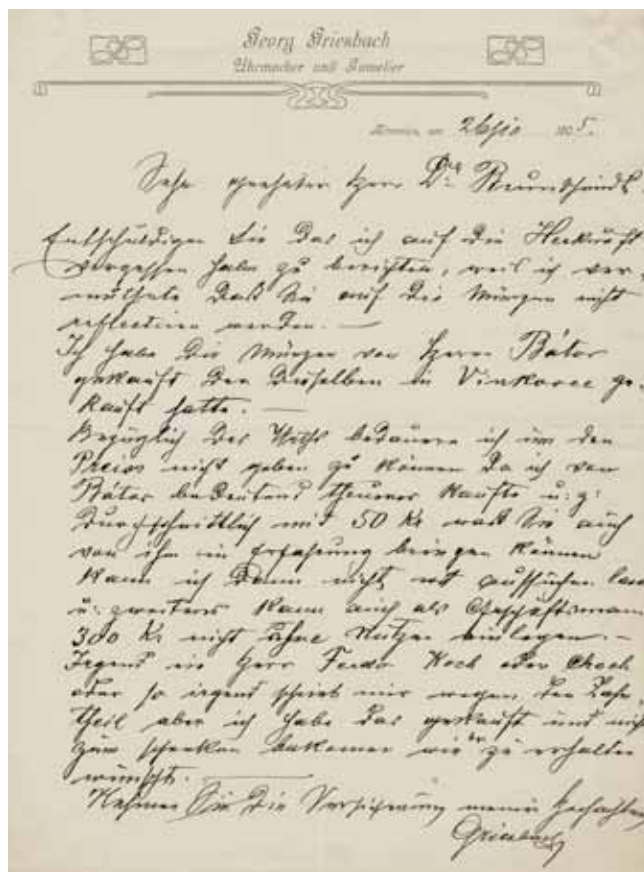 Georg Griesbach
Uhrmacher und Juwelier
am 26/ 1905.
Sehr geehrter Herr Dr.
Entschuldigen Sie das ich auf die Herkunft
vergessen habe zu berichten, weil ich ver-
muthete daß Sie auf die Münzen nicht
reflectiren werden. —
Ich habe die Münzen von Herrn Bátor
gekauft der dieselben in Vinkovce ge-
kauft hatte. —
Bezüglich des bedauere ich um den
Preiss nicht geben zu können da ich von
Bátor bedeutend theuerer kaufte u: z:
durchschnittlich mit 50 Kr was Sie auch
von ihm in Erfahrung bringen können
kann ich dann nicht aussuchen
u: zweitens kann auch als Geschäftsmann
300 Kr nicht ohne Nutzen einlegen. —
Irgend ein Herr Ferdo Koch oder Check
oder so irgend schrieb mir wegen den
theil aber ich habe das gekauft und nicht
zum schenken bekommen wie er zu erhalten
wünscht. —
Nehmen Sie die Versicherung meiner Hochachtung
Griesbach